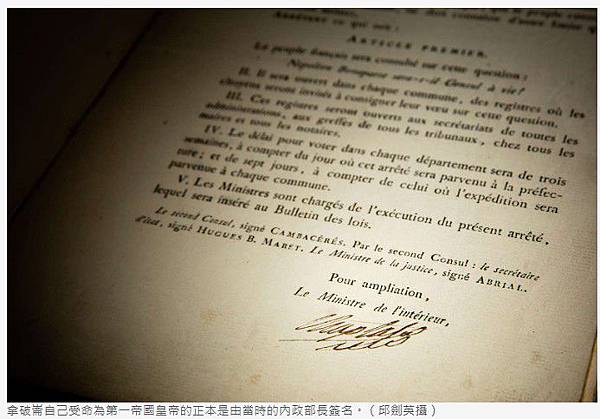 ARRÊTENT ce qui suit :
ARTICLE PREMIER.
Le peuple français sera consulté sur cette question :
Napoléon Bonaparte sera-t-il Consul à vie?
II. Il sera ouvert dans chaque commune, des registres où les
citoyens seront invités à consigner leur vœu sur cette question.
III. Ces registres seront ouverts aux secrétariats de toutes les
administrations, aux greffes de tous les tribunaux, chez tous les
maires et tous les notaires.
IV. Le délai pour voter dans chaque département sera de trois
semaines, à compter du jour où cet arrêté sera parvenu à la préfec-
ture; et de sept jours, à compter de celui où l'expédition sera
parvenue à chaque commune.
V. Les Ministres sont chargés de l'exécution du présent arrêté,
lequel sera inséré au Bulletin des lois.
Le second Consul, signé CAMBACÉRÈS. Par le second Consul : le secrétaire
d'état, signé HUGUES B. MARET. Le Ministre de la justice, signé ABRIAL.
Pour ampliation,
Le Ministre de l'intérieur,
拿破崙自己受命為第一帝國皇帝的正本是由當時的內政部長簽名。（邱劍英攝）